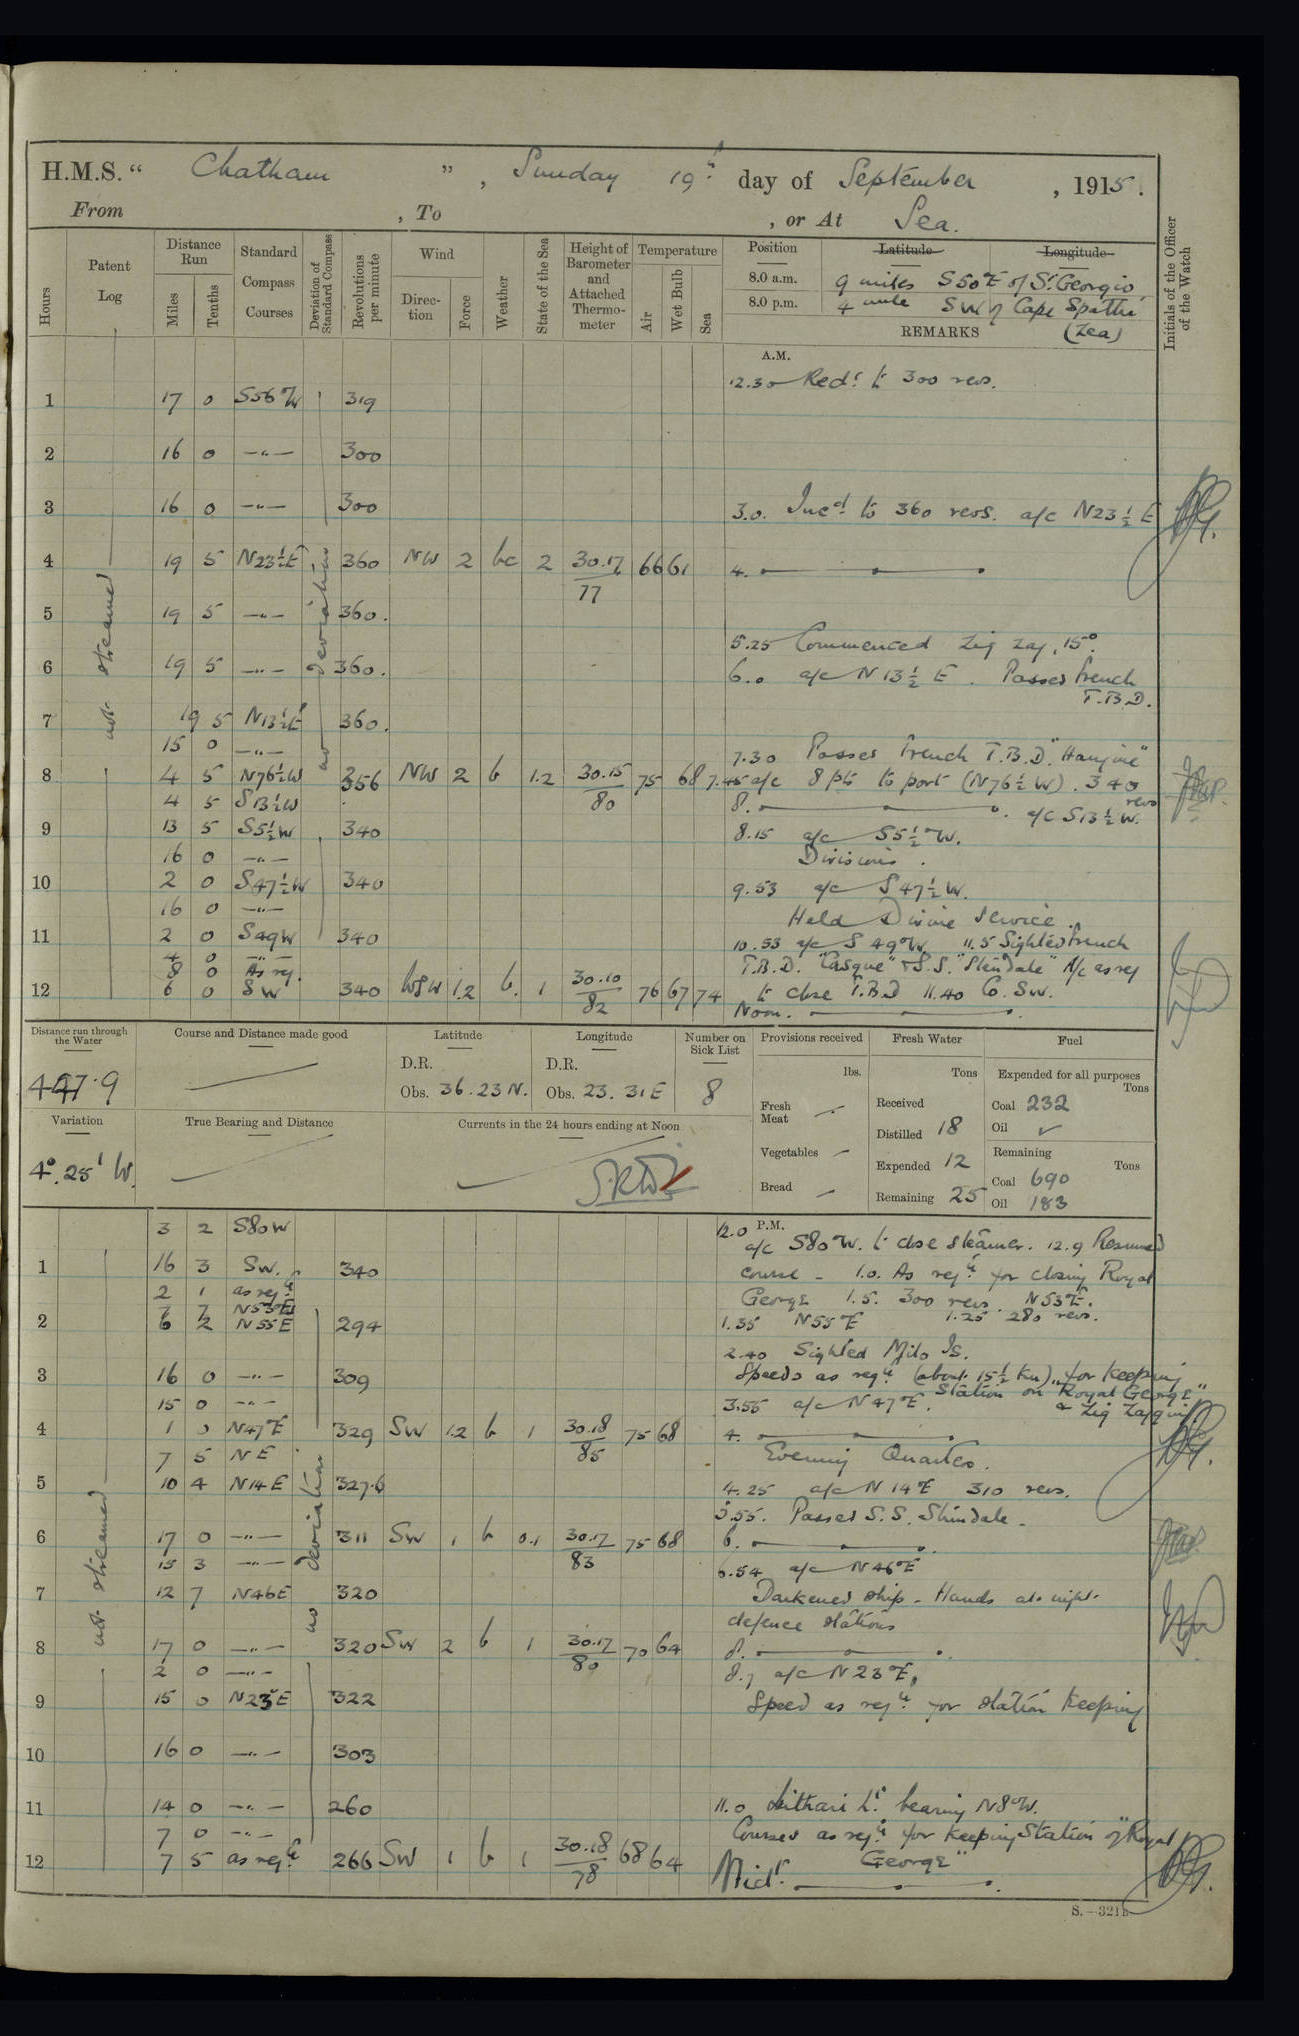 H.M.S. “ Chatham ”, Sunday 19th day of September, 1915.
From , To , or At Sea.
Hours
Patent Log
Distance Run
Miles
Tenths
Standard Compass Courses
Deviation of Standard Compass
Revolutions per minute
Wind
Direction
Force
Weather
State of the Sea
Height of Barometer and Attached Thermometer
Temperature
Air
Wet Bulb
Sea
Position
Latitude
Longitude
8.0 a.m. 9 miles S50°E of St Georgio
8.0 p.m. 4 mile SW of Cape Spathi
(Zea)
REMARKS
Initials of the Officer of the Watch
A.M.
12.30 Redd to 300 revs.
1 17 0 S56°W 319
2 16 0 —"— 300
3 16 0 —"— 300 3.0. Incd to 360 revs. a/c N23½E
4 19 5 N23½E 360 NW 2 bc 2 30.17 66 61 4.
77
5 19 5 —"— 360.
5.25 Commenced zig zag, 15°.
6 19 5 —"— 360. 6.0 a/c N13½E. Passed French
T.B.D.
not streamed
no deviation
7 19 5 N13½E 360.
15 0 —"— 7.30 Passed French T.B.D.
8 4 5 N76½W 356 NW 2 b 1.2 30.15 75 68 7.45 a/c 8 pts to port (N76½W). 340
80
revs
4 5 S13½W 8. a/c S13½W.
9 13 5 S5½W 340 8.15 a/c S5½°W.
16 0 —"— Divisions.
10 2 0 S47½W 340 9.53 a/c S47½W.
16 0 —"— Held Divine Service.
11 2 0 S49W 340 10.53 a/c S49°W. 11.5 Sighted French
4 0 —"— T.B.D. "Casque" & S.S. "Shindale" A/c as req
8 0 As req.
12 6 0 SW 340 WSW 1.2 b. 1 30.10 76 67 74 to close T.B.D 11.40 Co. SW.
82
Noon.
Distance run through the Water
447.9
Course and Distance made good
Latitude
D.R.
Obs. 36.23 N.
Longitude
D.R.
Obs. 23.31 E
Number on Sick List
8
Provisions received
lbs.
Fresh Meat
Vegetables
Bread
Fresh Water
Tons
Received
Distilled 18
Expended 12
Remaining 25
Fuel
Expended for all purposes
Tons
Coal 232
Oil
Remaining
Tons
Coal 690
Oil 183
Variation
4°.25' W.
True Bearing and Distance
Currents in the 24 hours ending at Noon
P.M.
3 2 S80W 12.0
a/c S80°W. to close steamer. 12.9 Resumed
1 16 3 SW. 340 course - 1.0. As reqd for closing Royal
2 1 as reqd George 1.5. 300 revs. N53°E.
7 7 N53°E
2 6 2 N55E 294 1.35 N55°E 1.25 280 revs.
2.40 Sighted Milo Is.
3 16 0 —"— 309 Speeds as reqd (about 15½ Kn) for keeping
station on "Royal George"
& Zig Zagging.
15 0 —"— 3.55 a/c N47°E.
4 1 0 N47°E 329 SW 1.2 b 1 30.18 75 68 4.
85
7 5 NE Evening Quarters.
5 10 4 N14E 327.6 4.25 a/c N14°E 310 revs.
5.55. Passed S.S. Shindale.
6 17 0 —"— 311 SW 1 b 0.1 30.17 75 68 6.
83
15 3 —"— 6.54 a/c N46°E
7 12 7 N46E 320 Darkened ship - Hands at night
defence stations
8 17 0 —"— 320 SW 2 b 1 30.17 70 64 8.
80
2 0 —"— 8.7 a/c N23°E,
9 15 0 N23°E 322 Speed as reqd for station keeping
not streamed
no deviation
10 16 0 —"— 303
11 14 0 —"— 260 11.0 Lithari Lt. bearing N8°W.
7 0 —"— Courses as reqd for keeping Station of "Royal
12 7 5 as reqd 266 SW 1 b 1 30.18 68 64 George"
78
Midt.
S.—321b